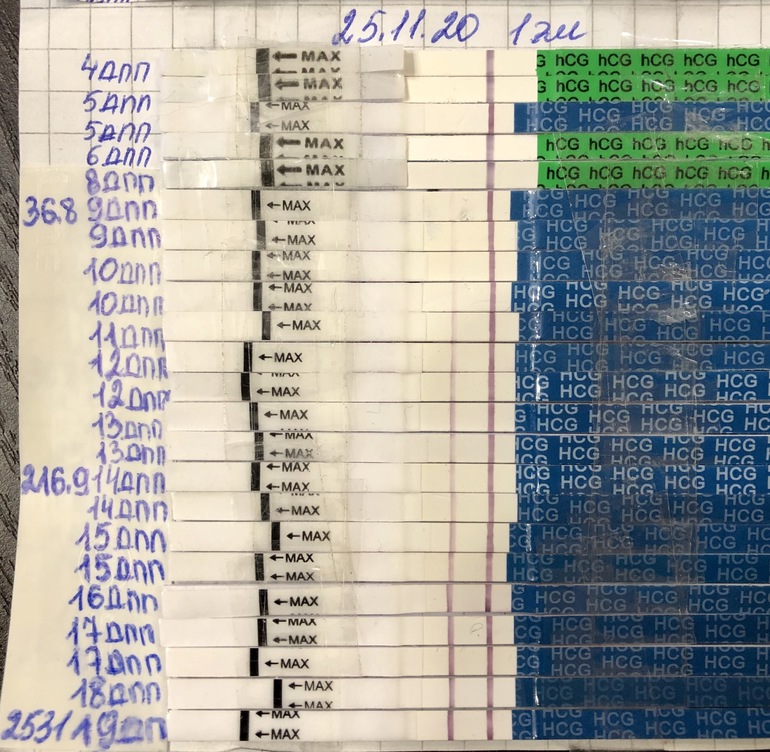 25.11.20 1эм
4дпп ←MAX hCG hCG hCG hCG
5дпп ←MAX hCG hCG hCG hCG
5дпп ←MAX HCG HCG HCG
6дпп ←MAX hCG hCG hCG hCG
8дпп ←MAX hCG hCG hCG hCG
36.8 9дпп ←MAX HCG HCG HCG
9дпп ←MAX HCG HCG HCG
10дпп ←MAX HCG HCG HCG
10дпп ←MAX HCG HCG HCG
11дпп ←MAX HCG HCG HCG
12дпп ←MAX HCG HCG HCG
12дпп ←MAX HCG HCG HCG
13дпп ←MAX HCG HCG HCG
13дпп ←MAX HCG HCG HCG
216.9 14дпп ←MAX HCG HCG HCG
14дпп ←MAX HCG HCG HCG
15дпп ←MAX HCG HCG HCG
15дпп ←MAX HCG HCG HCG
16дпп ←MAX HCG HCG HCG
17дпп ←MAX HCG HCG HCG
17дпп ←MAX HCG HCG HCG
18дпп ←MAX HCG HCG HCG
2531 19дпп ←MAX HCG HCG HCG